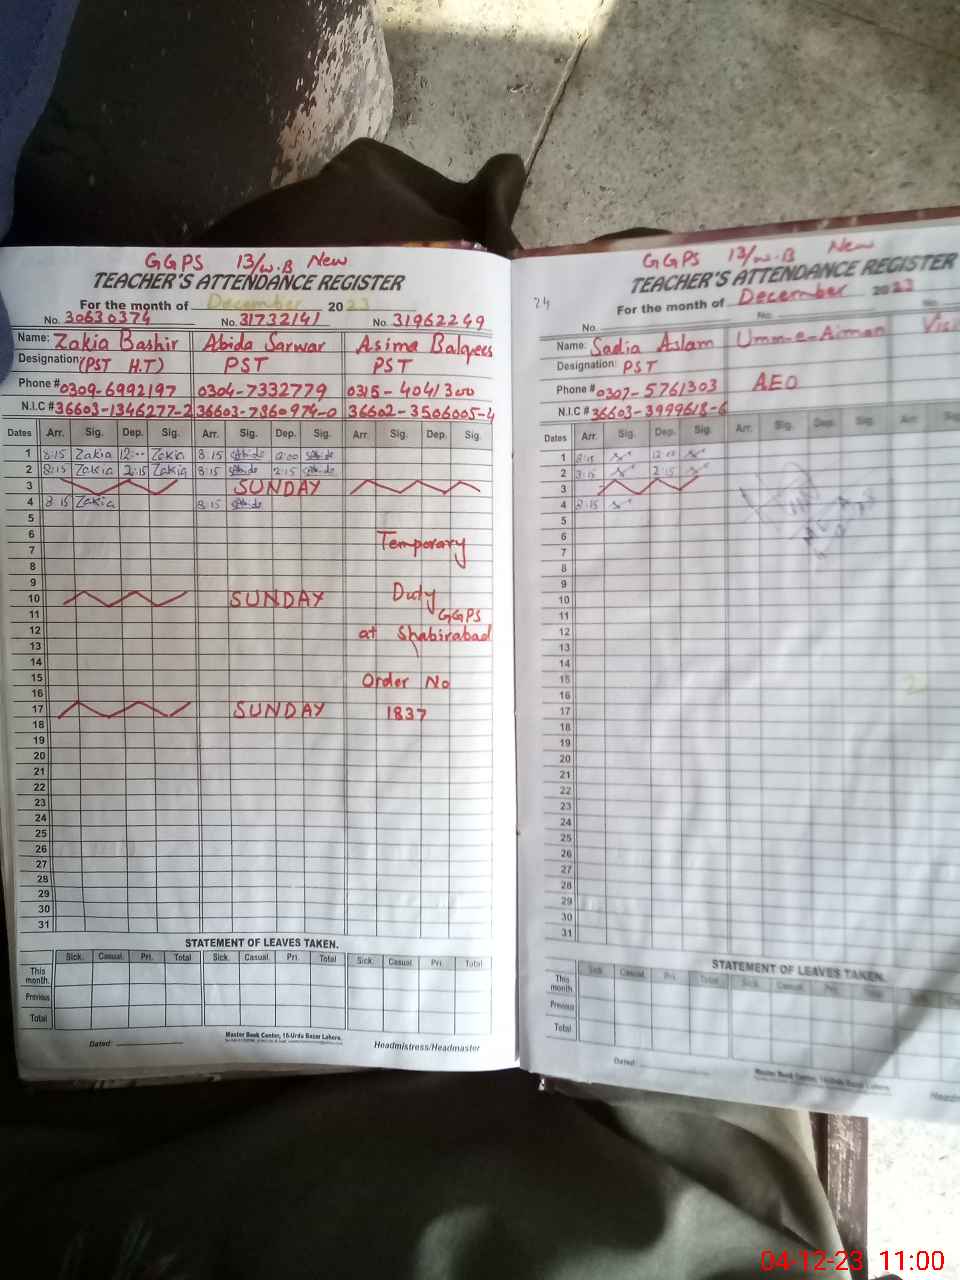 GGPS 13/W.B New
TEACHER'S ATTENDANCE REGISTER
For the month of December 2023
No. 30630374 No. 31732141 No. 31962249
Name: Zakia Bashir Abida Sarwar Asima Balqees
Designation: (PST H.T) PST PST
Phone # 0309-6992197 0304-7332779 0315-4041300
N.I.C # 36603-1346277-2 36603-7860974-0 36602-3506005-4
Dates Arr. Sig. Dep. Sig. Arr. Sig. Dep. Sig. Arr. Sig. Dep. Sig.
1 8:15 Zakia 12:00 Zakia 8:15 Abida 12:00 Abida
2 8:15 Zakia 2:15 Zakia 8:15 Abida 2:15 Abida
3 SUNDAY
4 8:15 Zakia 8:15 Abida
5
6 Temporary
7
8
9
10 SUNDAY Duty
11 GGPS
12 at Shabirabad
13
14
15 Order No
16
17 SUNDAY 1837
18
19
20
21
22
23
24
25
26
27
28
29
30
31
STATEMENT OF LEAVES TAKEN.
Sick. Casual. Pri. Total Sick. Casual. Pri. Total Sick. Casual. Pri. Total
This month.
Previous
Total
Master Book Center, 15-Urdu Bazar Lahore.
Dated: Headmistress/Headmaster
GGPS 13/W.B New
TEACHER'S ATTENDANCE REGISTER
24
For the month of December 2023
No. No. No.
Name: Sadia Aslam Umm-e-Aiman
Designation: PST
Phone # 0307-5761303 AEO
N.I.C # 36603-3999618-6
Dates Arr. Sig. Dep. Sig. Arr. Sig. Dep. Sig. Arr. Sig.
1 8:15 12:00
2 8:15 2:15
3
4 8:15
5
6
7
8
9
10
11
12
13
14
15
16
17
18
19
20
21
22
23
24
25
26
27
28
29
30
31
STATEMENT OF LEAVES TAKEN.
Sick. Casual. Pri. Total Sick. Casual.
This month.
Previous
Total
Dated:
Master Book Center, 15-Urdu Bazar Lahore.
04-12-23 11:00